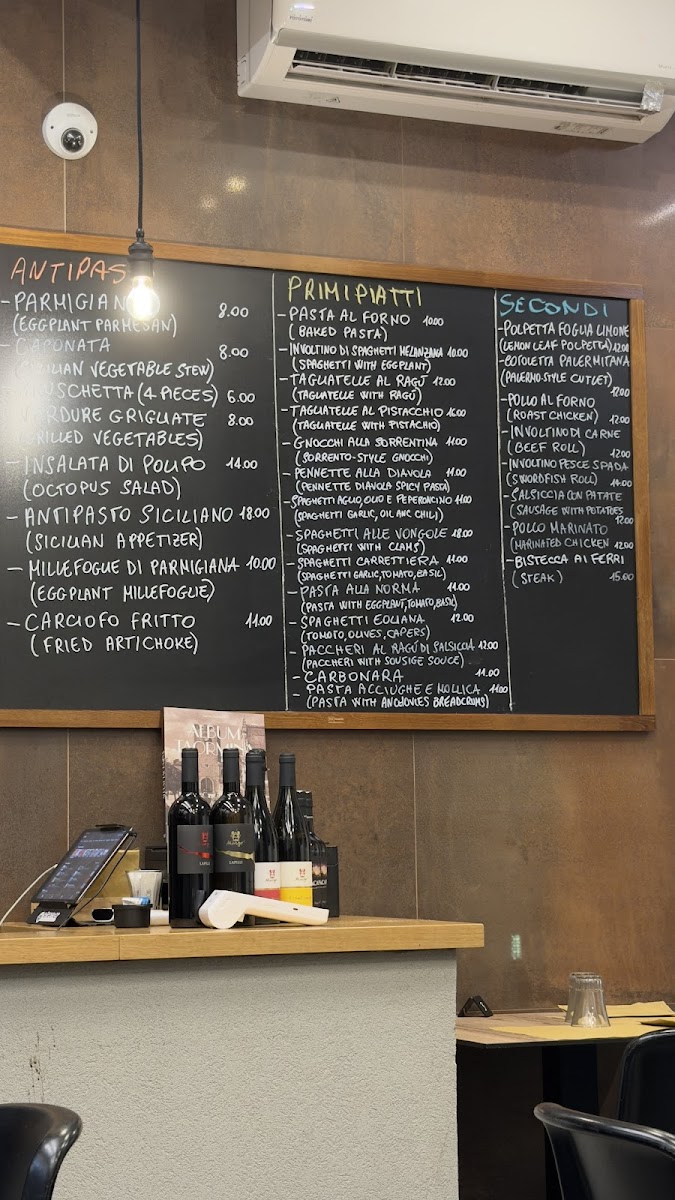 ANTIPAS
- PARMIGIAN
8.00
(EGGPLANT PARMESAN)
- CAPONATA
8.00
(SICILIAN VEGETABLE STEW)
BRUSCHETTA (4 PIECES) 6.00
VERDURE GRIGLIATE 8.00
(GRILLED VEGETABLES)
- INSALATA DI POLIPO 14.00
(OCTOPUS SALAD)
- ANTIPASTO SICILIANO 18.00
(SICILIAN APPETIZER)
- MILLEFOGLIE DI PARMIGIANA 10.00
(EGGPLANT MILLEFOGLIE)
- CARCIOFO FRITTO 11.00
(FRIED ARTICHOKE)
PRIMI PIATTI
- PASTA AL FORNO 10.00
(BAKED PASTA)
- INVOLTINO DI SPAGHETTI MELANZANA 10.00
(SPAGHETTI WITH EGGPLANT)
- TAGLIATELLE AL RAGÚ 12.00
(TAGLIATELLE WITH RAGÚ)
- TAGLIATELLE AL PISTACCHIO 16.00
(TAGLIATELLE WITH PISTACHIO)
- GNOCCHI ALLA SORRENTINA 11.00
(SORRENTO-STYLE GNOCCHI)
- PENNETTE ALLA DIAVOLA 11.00
(PENNETTE DIAVOLA SPICY PASTA)
- SPAGHETTI AGLIO, OLIO E PEPERONCINO 11.00
(SPAGHETTI GARLIC, OIL ANC CHILI)
- SPAGHETTI ALLE VONGOLE 18.00
(SPAGHETTI WITH CLAMS)
- SPAGHETTI CARRETTIERA 11.00
(SPAGHETTI GARLIC, TOMATO, BASIL)
- PASTA ALLA NORMA 11.00
(PASTA WITH EGGPLANT, TOMATO, BASIL)
- SPAGHETTI EOLIANA 12.00
(TOMATO, OLIVES, CAPERS)
- PACCHERI AL RAGÚ DI SALSICCIA 12.00
(PACCHERI WITH SOUSIGE SOUCE)
- CARBONARA 11.00
- PASTA ACCIUGHE E MOLLICA 11.00
(PASTA WITH ANCHOVIES BREADCRUMS)
SECONDI
- POLPETTA FOGLIA LIMONE
(LEMON LEAF POLPETTA) 12.00
- COTOLETTA PALERMITANA
(PALERMO-STYLE CUTLET)
12.00
- POLLO AL FORNO
(ROAST CHICKEN) 12.00
- INVOLTINO DI CARNE
(BEEF ROLL) 12.00
- INVOLTINO PESCE SPADA
(SWORDFISH ROLL) 14.00
- SALSICCIA CON PATATE
(SAUSAGE WITH POTATOES
12.00
- POLLO MARINATO
(MARINATED CHICKEN 12.00
- BISTECCA AI FERRI
(STEAK) 15.00
ALBUM
TAORMINA